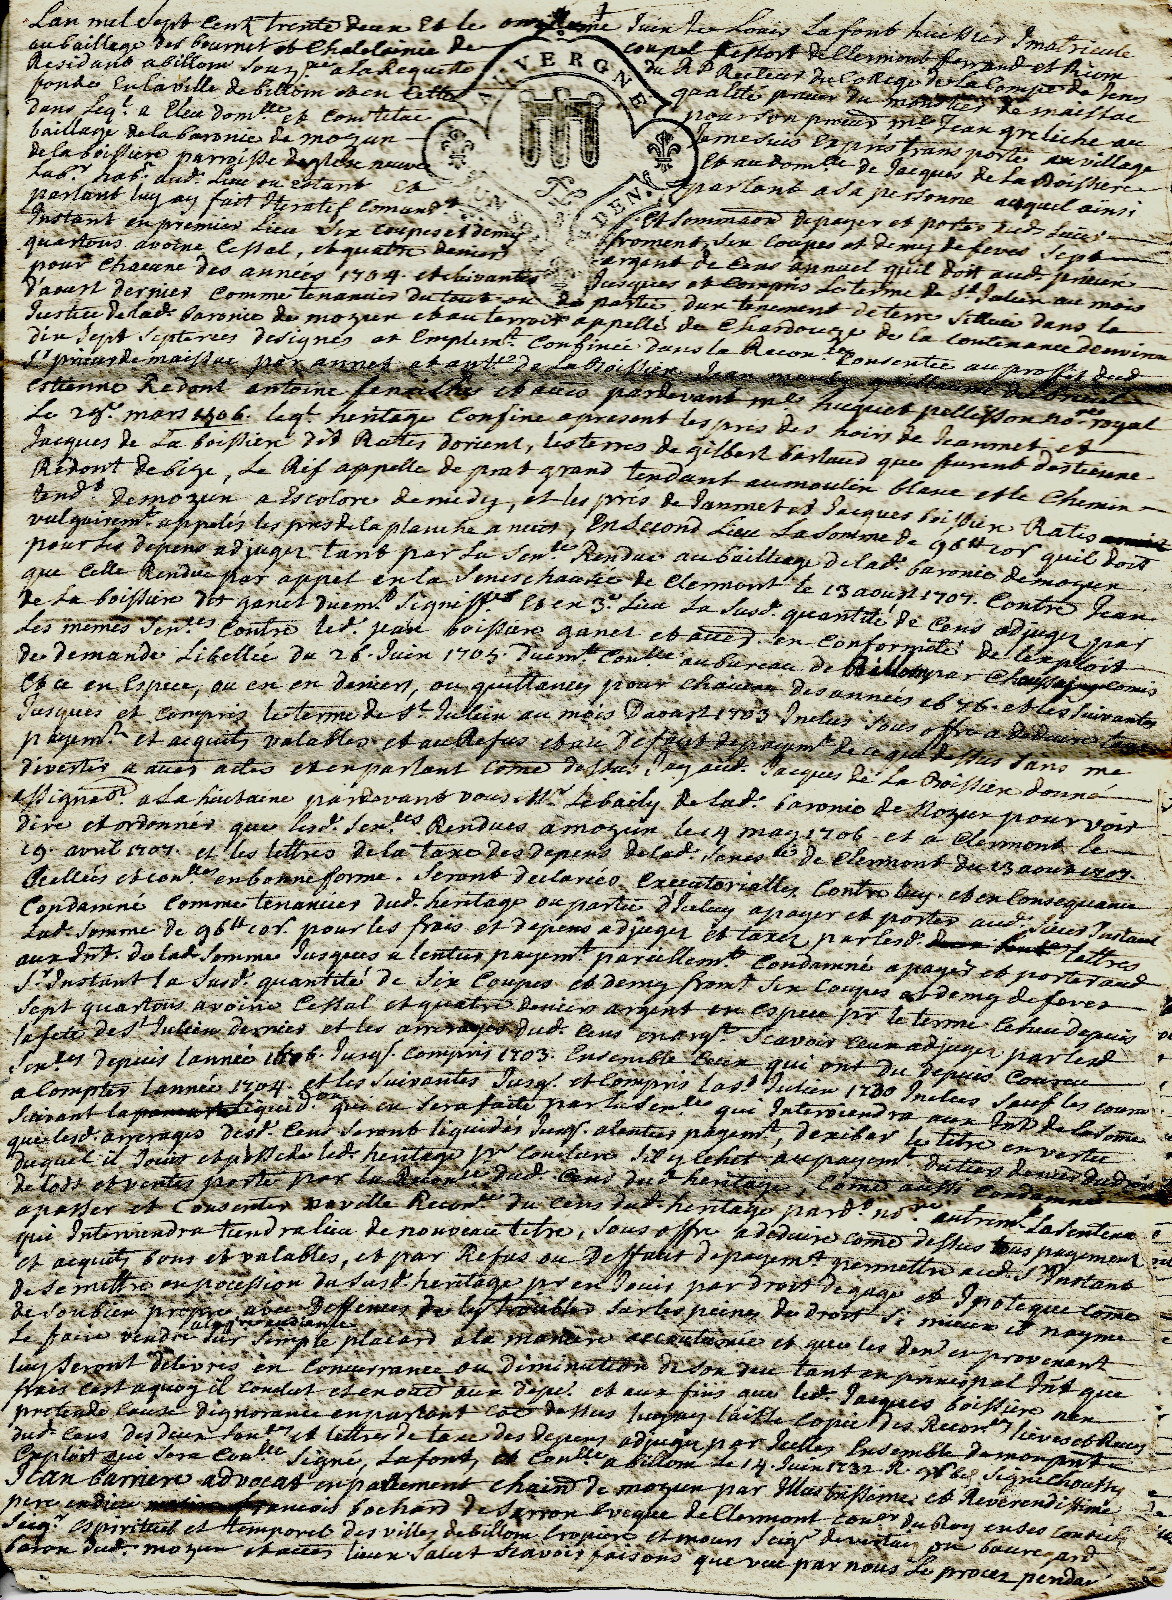 Lan mil sept Cent trente deux Et le onzieme Juin Je Louis Lafont huissier Jmatriculé
au bailliage des bournet et Chatelainie de coupel Ressort de Clermont ferrand et Riom
Residant a billom Souz.ne a la Requette du Rd Recteur du Colege de la Compe de Jesus
fondé En la ville de billom et en cette qualité prieur du monastier de maissac
dans leql a Eleu domlle et constitué pour son procur me Jean greliche au
bailliage de la baronie de mozun Jamesuis Exprés transporté au village
de la boissiere parroisse de glene neuve Et au domlle de Jacques de La Boissiere
Labr habt aud. Lieu ou estant et parlant a sa personne auquel ainsi
parlant luy ay fait Jteratif Comandt Et Sommaon depayer et porter aud. Sieur
Instant en premier Lieu Six Coupes et demy froment, Six Coupes et demy de feves Sept
quartous avoine Cessal, et quatre deniers argent de Cens annuel quil doit aud. prieur
pour Chacune des années 1704 et suivantes Jusques et Compris Le terme de St Julien au mois
d'aoust dernier Comme tenancier du tout ou de partie dun tenement de terre Scitué dans la
Justice de lad. baronie de mozun et au terroir appellé de Chardouze de la Contenance denviron
dix Sept Septerées designés et Emplemt Confinée dans la Reconce Consentie au proffit dud.
Sr prieur de maissac par annet et antne de La Boissiere Jean
Estienne Redont antoine et autres pardevant mes huguet pellisson nores royal
Le 29e mars 1506. leql heritage Confine apresent les pres des hoirs de Jeanmet, et
Jacques de La boissiere dit Rates dorient, les terres de gilbert barlaud que furent destienne
Redont de bize, Le Rif appellé de prat grand tendant au moulin blanc et le Chemin
tendt demozun a Escolore de midy, et les prés de Janmet et Jacques boissiere Rates
vulgairemt appelés les prés de la planche a nuit, En Second Lieu La Somme de 96tt cos quil doit
pour Les depens adjuges tant par La Sence Rendue au bailliage de lad. baronie de mozun
que Celle Rendue par appel en la Seneschaussée de Clermont le 13 aoust 1707. Contre Jean
de La boissiere dit ganet duemt Signiffes Et en 3e Lieu La Susd. quantité de Cens adjuges par
Les memes Senes Contre led. jean boissiere ganet et aued. en Conformité de lexploit
de demande Libellée du 26. Juin 1705. duemt Conlle au bureau de Billom par Chaussaing comis
Et ce en Espece, ou en deniers, ou quittances pour chacune des années 1676. et les Suivantes
Jusques et compris le terme de St Julien au mois Daoust 1703 Inclus Sous offre a deduire tous
payemt et acquits valables et au Refus et au Deffaut depayemt de ce que dessus Sans me
divertir a autres actes et en parlant come dessus Jay aud. Jacques de La Boissiere donné
assignaon a La huitaine pardevant vous Mr Le baily de lad. baronie de Mozun pour voir
dire et ordonner que lesd. Senes Rendues a mozun le 14 may 1706. et a Clermont le
19. avril 1707. et les lettres de la taxe des depens de lad. Senesee de Clermont du 13 aoust 1707.
Scellées et Conlles en bonne forme. Seront declarées Executorialles Contre luy et en Consequance
Condamne Comme tenancier dud. heritage ou partie d'iceluy apayer et porter aud. Sieur Instant
Lad. Somme de 96tt cos. pour les frais et depens adjuges et taxez par lesd. lettres
aux Jnt. de lad. Somme Jusques a lentier payemt pareillemt Condamné apayer et porter aud
Sr Instant la Susd. quantité de Six Coupes et demy fromt Six Coupes et demy de feves
Sept quartous avoine Cessal et quatre deniers argent en Espece pr le terme Echeu depuis
la fete de St Julien dernier et les arrerages dud. Cens en argt Scavoir Ceux adjuges par lesd
Senes depuis lannée 1676. Jusqs. Compris 1703. Ensemble Ceux qui ont du depuis Couru
a Compter lannée 1704. et les Suivantes Jusqs. et Compris La St Julien 1730 Inclus Sauf les cours
Suivant la liquidon qui en Sera faite par la Sence qui Interviendra aux Jnt. de la Some
que lesd. arrerages desd. Cens Seront liquides Jusqs. alentier payemt, dexiber le titre en vertu
duquel il Jouit et possede led. heritage pr Conclure Sil y Echet au payemt du tiers denier du droit
de lods et ventes porté par la Reconce dud. Cens dud. heritage, Come aussi Condamné
apasser et Consentir nouvelle Reconce du Cens dud. heritage pard. nore autremt La Sentence
qui Interviendra tiendra lieu de nouveau titre, Sous offre adeduire come dessus tous payement
et acquits bons et valables, et par Refus ou Deffaut depayemt permettre aud. Sr Instant
de Se mettre en pocession du Susd. heritage pr en Jouir par droit de gage et Jpoteque Come
de Son bien propre avec Deffences de ly troubler Sur les peines de droit Si mieux il nayme
Le faire vendre sur Simple placard a la maniere accoutumée et que les denrs en provenant
luy Seront delivres en Concurrance ou diminution de Son deu tant en principal Jnt que
frais c'est aquoy il conclut et en outre aux depe. et aux fins que led. Jacques boissiere nen
pretende Cause dignorance en parlant Coe dessus luy ay laissé Copie des Reconces lieves et Raus
dud. Cens des deux Senes et lettres de taxe des depens adjuges par Jcelles Ensemble de mon pnt
Exploit qui Sera Conlle Signé, Lafont, et Conlle a billom Le 14 Juin 1732 R. Signé Choussy
Jean barriere advocat en parlement chatain de mozun par Jllustrissime et Reverendissime
pere en dieu francois bochard de Sarron Eveque de Clermont Coner du Roy en ses Conseils
Seigr Espirituel et temporel des villes de billom Croupiere et mours Seigr de vertaizon beauregard
baron dud. mozun et autres lieux Salut Scavoir faisons que vue par nous Le procez pendant
AUVERGNE
DEN.